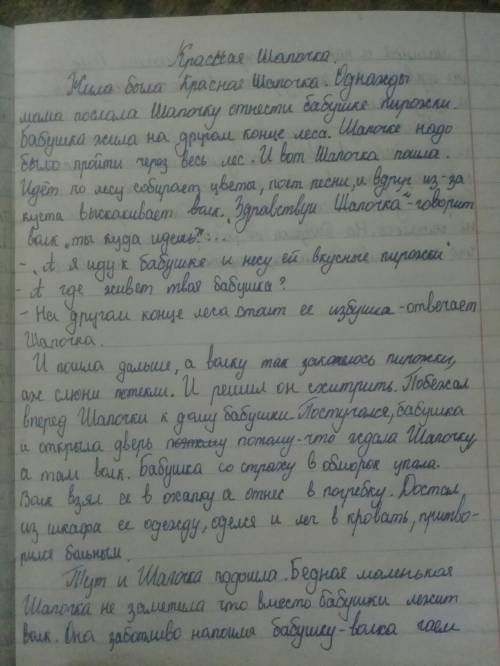 Красная Шапочка.
Жила была Красная Шапочка. Однажды
мама послала Шапочку отнести бабушке пирожки.
Бабушка жила на другом конце леса. Шапочке надо
было пройти через весь лес. И вот Шапочка пошла.
Идёт по лесу собирает цветы, поёт песни, и вдруг из-за
куста выскакивает волк. "Здравствуй Шапочка"-говорит
волк "ты куда идешь?"...
- "А я иду к бабушке и несу ей вкусные пирожки"
- А где живет твоя бабушка?
- На другом конце леса стоит ее избушка-отвечает
Шапочка.
И пошла дальше, а волку так захотелось пирожки,
аж слюни потекли. И решил он схитрить. Побежал
вперед Шапочки к дому бабушки. Постучался, бабушка
и открыла дверь потому-что ждала Шапочку,
а там волк. Бабушка со страху в обморок упала.
Волк взял ее в охапку а отнес в погребку. Достал
из шкафа ее одежду, оделся и лег в кровать, притво-
рился больным.
Тут и Шапочка подошла. Бедная маленькая
Шапочка не заметила что вместо бабушки лежит
волк. Она заботливо напоила бабушку-волка чаем